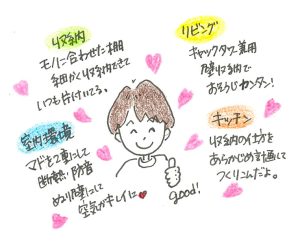 収納
モノに合わせた棚
細かく収納できて
いつも片付いてる。
リビング
キャックタワー兼用
壁収納で
おそうじカンタン!
室内環境
マドを2重にして
断熱・防音
ぬり壁にして
空気がキレイに
キッチン
収納の仕方を
あらかじめ計画して
つくりこんだよ。
good!